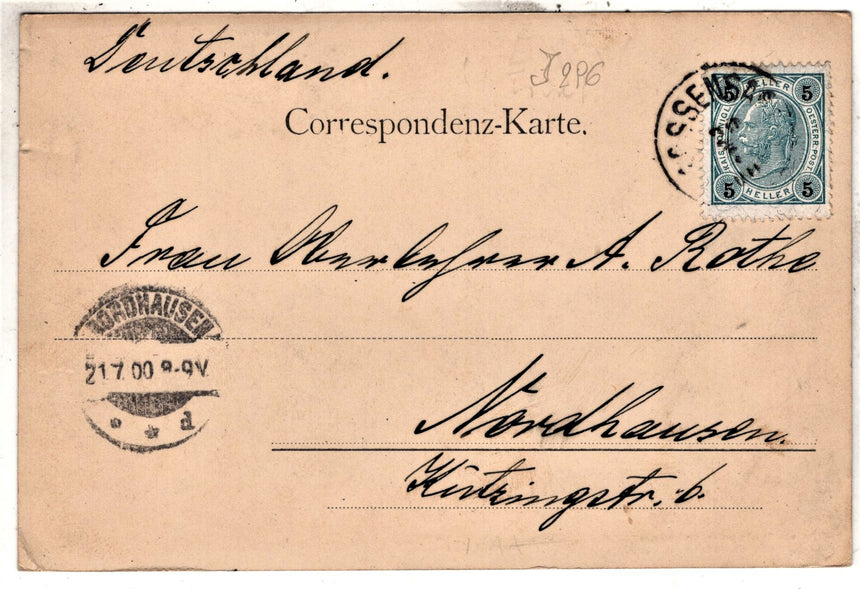 Deutschland.
J 296
Correspondenz-Karte.
5 HELLER 5
KAIS. KÖNIGL. OESTERR. POST
5 HELLER 5
Frau Oberlehrer A. Rothe
NORDHAUSEN
21.7.00 8-9V.
* d
Nordhausen.
Kützingstr. 6.